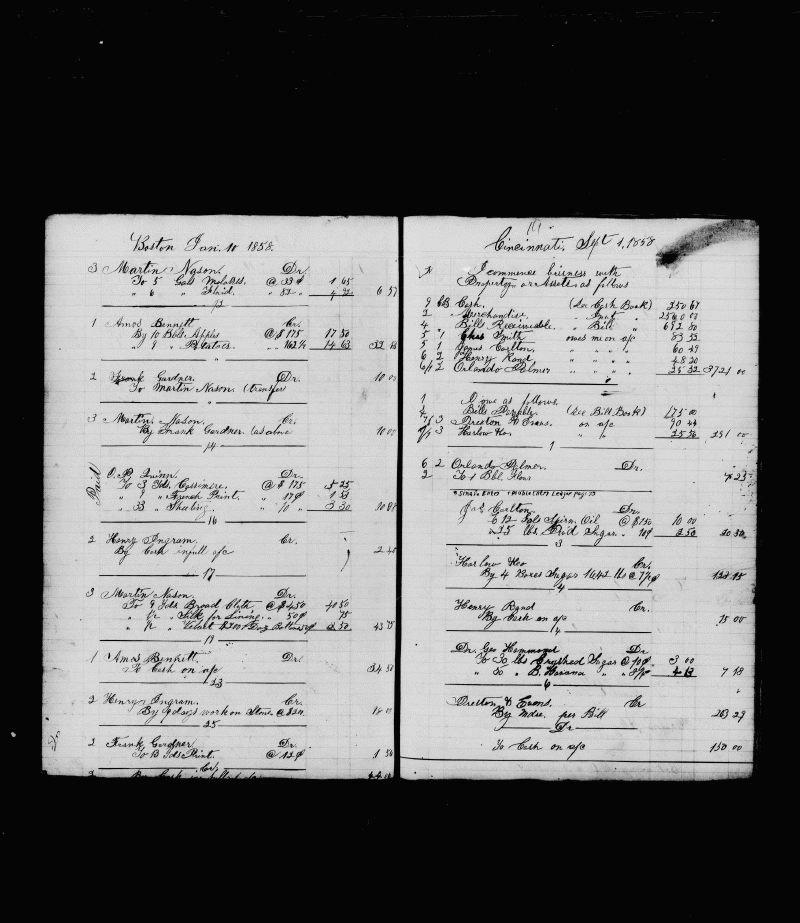 Boston Jan. 10 1858.
3 Martin Nason. Dr.
To 5 Gals Molasses. @ 33¢ 1 65
" 6 " Fluid. " 82 " 4 92 6 57
13
1 Amos Bennett Cr.
By 10 Bbls. Apples @ $175 17 50
" 9 " Potatoes. " 162½ 14 63 32 13
"
2 Frank Gardner. Dr. 10 00
To Martin Nason. (transfer)
"
3 Martin Nason. Cr.
By Frank Gardner. (as above 10 00
14
Paid
O. P. Quinn. Dr.
To 3 Yds. Cassimere. @ $175 5 25
" 9 " French Print. " 17¢ 1 53
" 33 " Sheeting. " 10 " 3 30 10 08
16
2 Henry Ingram. Cr.
By Cash in full a/c 2 40
17
3 Martin Nason. Dr.
To 9 Yds. Broad Cloth. @ $450 40 50
" " Silk for Lining. " 50¢ 75
" " Velvet 2 50 43 75
19
1 Amos Bennett. Dr.
To Cash on a/c 34 50
23
2 Henry Ingram. Cr.
By 9 days work on Store. @ $2 18 00
25
2 Frank Gardner Dr.
To 13 Yds Print. @ 12¢ 1 56
Cr.
By Cash in full a/c
Cincinnati, Sept 1, 1858
I commence business with
Property or Assets as follows
9 Cash. (See Cash Book) 250 67
2 Merchandise. " Invt " 2560 00
4 Bills Receivable. " Bill " 682 50
5 1 Chas Smith owes me on a/c 83 52
5 1 James Carlton. " " " " 60 49
6 2 Henry Rand " " " " 48 20
6/1 2 Orlando Palmer " " " " 35 32 3721 00
"
1 I owe as follows.
4 Bills Payable. (See Bill Book) 175 00
7/1 3 Preston & Evans. on a/c 90 44
3 Harlow & Co. " " 25 56 291 00
1
6 2 Orlando Palmer. Dr.
2 To 1 Bbl. Flour 4 25
Jas. Carlton. Dr.
To 12 Gals Sperm. Oil @ $150 10 00
" 25 lbs. Brd Sugar. " 10¢ 2 50 20 50
3
Harlow & Co Cr.
By 4 Boxes Sugar 1642 lbs @ 7½¢ 123 15
4
Henry Rand Cr.
By Cash on a/c 75 00
4
Dr. Geo Hammond Dr
To 30 lbs Crushed Sugar @ 10¢ 3 00
" 50 " B. Havana " " 4 13 7 13
6
Preston & Evans. Cr
By Mdse. per Bill 263 29
Dr
To Cash on a/c 150 00